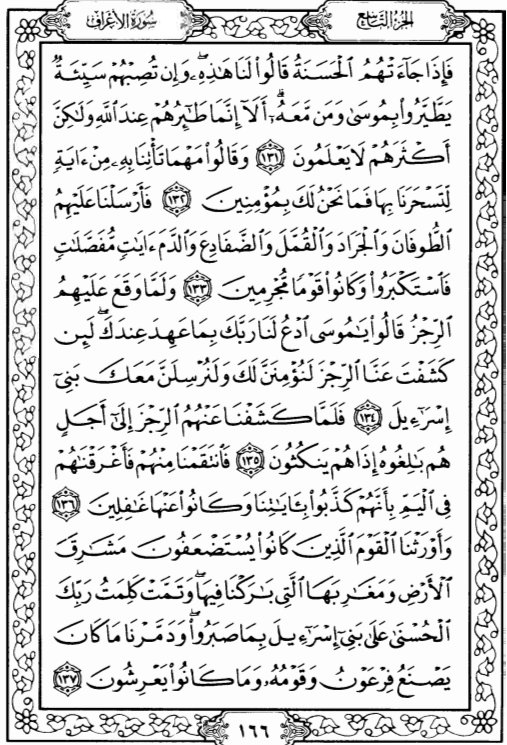 سُورَةُ الأَعْرَافِ الجُزْءُ التَّاسِعُ
فَإِذَا جَآءَتْهُمُ ٱلْحَسَنَةُ قَالُوا۟ لَنَا هَٰذِهِۦۖ وَإِن تُصِبْهُمْ سَيِّئَةٌ
يَطَّيَّرُوا۟ بِمُوسَىٰ وَمَن مَّعَهُۥٓۗ أَلَآ إِنَّمَا طَٰٓئِرُهُمْ عِندَ ٱللَّهِ وَلَٰكِنَّ
أَكْثَرَهُمْ لَا يَعْلَمُونَ ١٣١ وَقَالُوا۟ مَهْمَا تَأْتِنَا بِهِۦ مِنْ ءَايَةٍ
لِّتَسْحَرَنَا بِهَا فَمَا نَحْنُ لَكَ بِمُؤْمِنِينَ ١٣٢ فَأَرْسَلْنَا عَلَيْهِمُ
ٱلطُّوفَانَ وَٱلْجَرَادَ وَٱلْقُمَّلَ وَٱلضَّفَادِعَ وَٱلدَّمَ ءَايَٰتٍ مُّفَصَّلَٰتٍ
فَٱسْتَكْبَرُوا۟ وَكَانُوا۟ قَوْمًا مُّجْرِمِينَ ١٣٣ وَلَمَّا وَقَعَ عَلَيْهِمُ
ٱلرِّجْزُ قَالُوا۟ يَٰمُوسَى ٱدْعُ لَنَا رَبَّكَ بِمَا عَهِدَ عِندَكَۖ لَئِن
كَشَفْتَ عَنَّا ٱلرِّجْزَ لَنُؤْمِنَنَّ لَكَ وَلَنُرْسِلَنَّ مَعَكَ بَنِىٓ
إِسْرَٰٓءِيلَ ١٣٤ فَلَمَّا كَشَفْنَا عَنْهُمُ ٱلرِّجْزَ إِلَىٰٓ أَجَلٍ
هُم بَٰلِغُوهُ إِذَا هُمْ يَنكُثُونَ ١٣٥ فَٱنتَقَمْنَا مِنْهُمْ فَأَغْرَقْنَٰهُمْ
فِى ٱلْيَمِّ بِأَنَّهُمْ كَذَّبُوا۟ بِـَٔايَٰتِنَا وَكَانُوا۟ عَنْهَا غَٰفِلِينَ ١٣٦
وَأَوْرَثْنَا ٱلْقَوْمَ ٱلَّذِينَ كَانُوا۟ يُسْتَضْعَفُونَ مَشَٰرِقَ
ٱلْأَرْضِ وَمَغَٰرِبَهَا ٱلَّتِى بَٰرَكْنَا فِيهَاۖ وَتَمَّتْ كَلِمَتُ رَبِّكَ
ٱلْحُسْنَىٰ عَلَىٰ بَنِىٓ إِسْرَٰٓءِيلَ بِمَا صَبَرُوا۟ۖ وَدَمَّرْنَا مَا كَانَ
يَصْنَعُ فِرْعَوْنُ وَقَوْمُهُۥ وَمَا كَانُوا۟ يَعْرِشُونَ ١٣٧
١٦٦